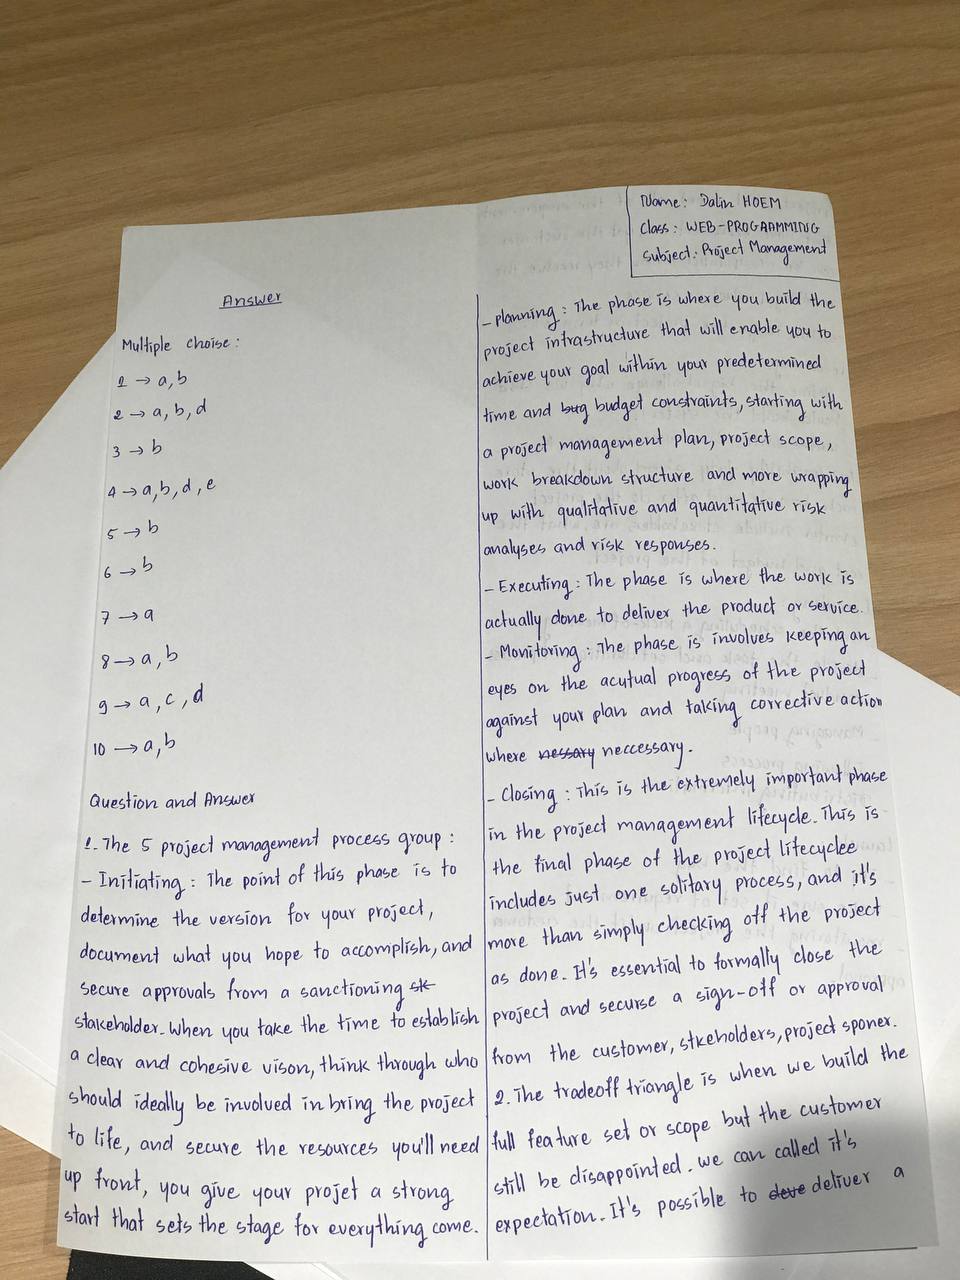 Name: Dalin HOEM
Class: WEB-PROGRAMMING
Subject: Project Management
Answer
Multiple choise:
1 → a,b
2 → a, b, d
3 → b
4 → a,b,d,e
5 → b
6 → b
7 → a
8 → a, b
9 → a, c, d
10 → a,b
Question and Answer
1. The 5 project management process group:
- Initiating: The point of this phase is to
determine the version for your project,
document what you hope to accomplish, and
secure approvals from a sanctioning sk
stakeholder. When you take the time to establish
a clear and cohesive vison, think through who
should ideally be involved in bring the project
to life, and secure the resources you'll need
up front, you give your projet a strong
start that sets the stage for everything come.
- Planning: The phase is where you build the
project infrastructure that will enable you to
achieve your goal within your predetermined
time and bug budget constraints, starting with
a project management plan, project scope,
work breakdown structure and more wrapping
up with qualitative and quantitative risk
analyses and risk responses.
- Executing: The phase is where the work is
actually done to deliver the product or service.
- Monitoring: The phase is involves keeping an
eyes on the acutual progress of the project
against your plan and taking corrective action
where nessary neccessary.
- Closing: This is the extremely important phase
in the project management lifecycle. This is
the final phase of the project lifecyclee
includes just one solitary process, and it's
more than simply checking off the project
as done. It's essential to formally close the
project and securse a sign-off or approval
from the customer, stkeholders, project sponer.
2. The tradeoff triangle is when we build the
full feature set or scope but the customer
still be disappointed. we can called it's
expectation. It's possible to deve deliver a